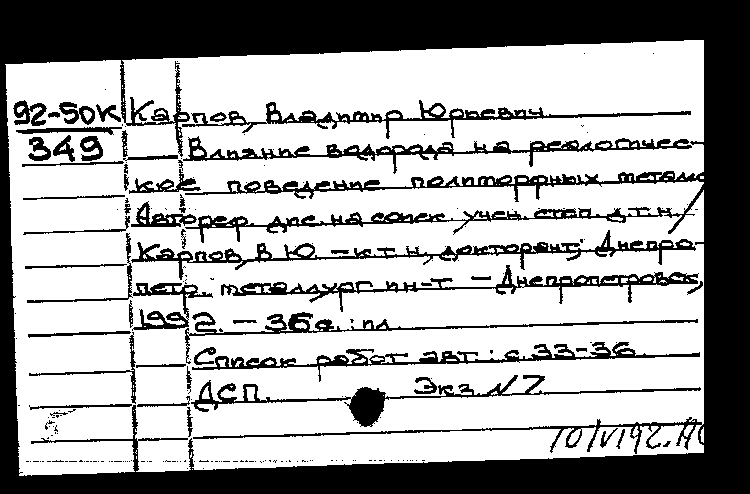 92-50к Карпов, Владимир Юрьевич.
349 Влияние водорода на реологичес-
кое поведение полиморфных металло
Автореф. дис. на соиск. учен. степ. д.т.н. /
Карпов, В.Ю. – к.т.н., докторант; Днепро-
петр. металлург. ин-т. – Днепропетровск,
1992. – 36 с.: ил.
Список работ авт.: с. 33-36.
ДСП. Экз. N 7.
10/VI92.